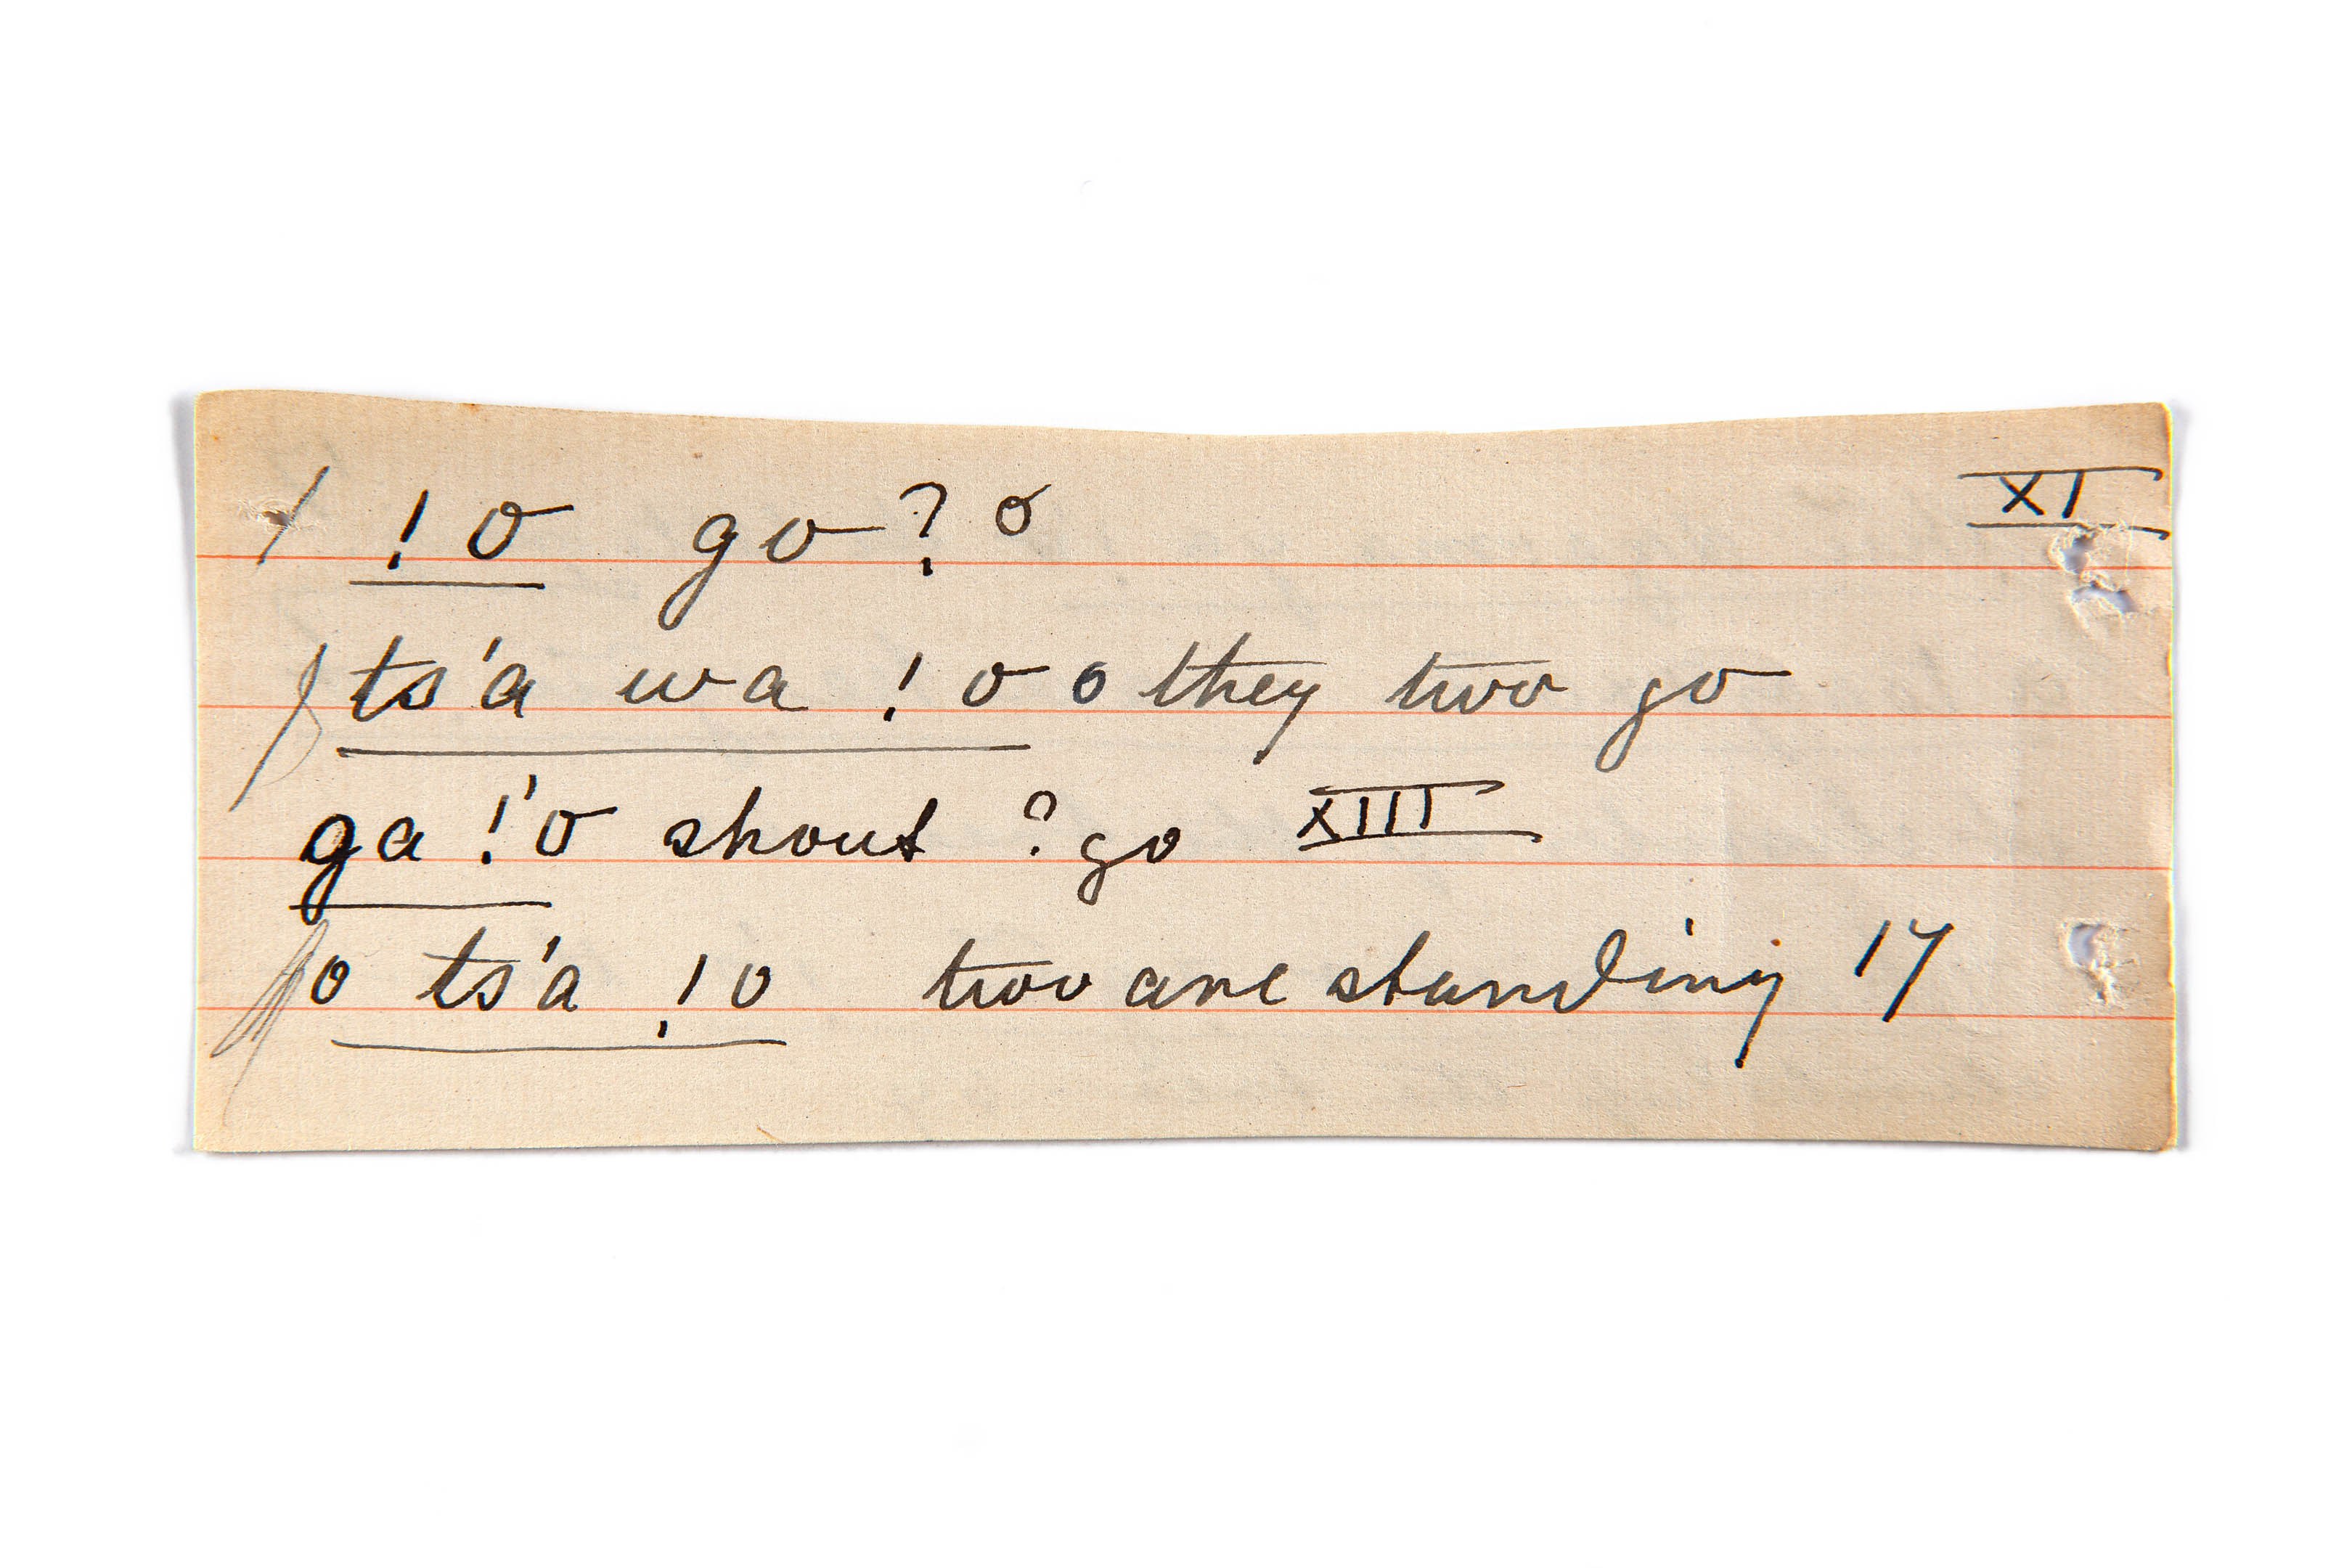 ! o go ? o XI
ts'a wa ! o o they two go
ga !'o shout ? go XIII
o ts'a ! o two are standing 17